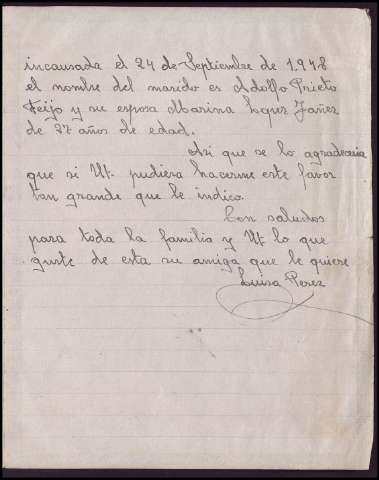 incausada el 24 de Septiembre de 1.948
el nombre del marido es Adolfo Prieto
Feijo y su esposa Marina Lopez Yañez
de 37 años de edad.
Asi que se lo agradeceria
que si Ut. pudiera hacerme este favor
tan grande que le indico.
Con saludos
para toda la familia y Ut lo que
guste de esta su amiga que le quiere
Luisa Perez